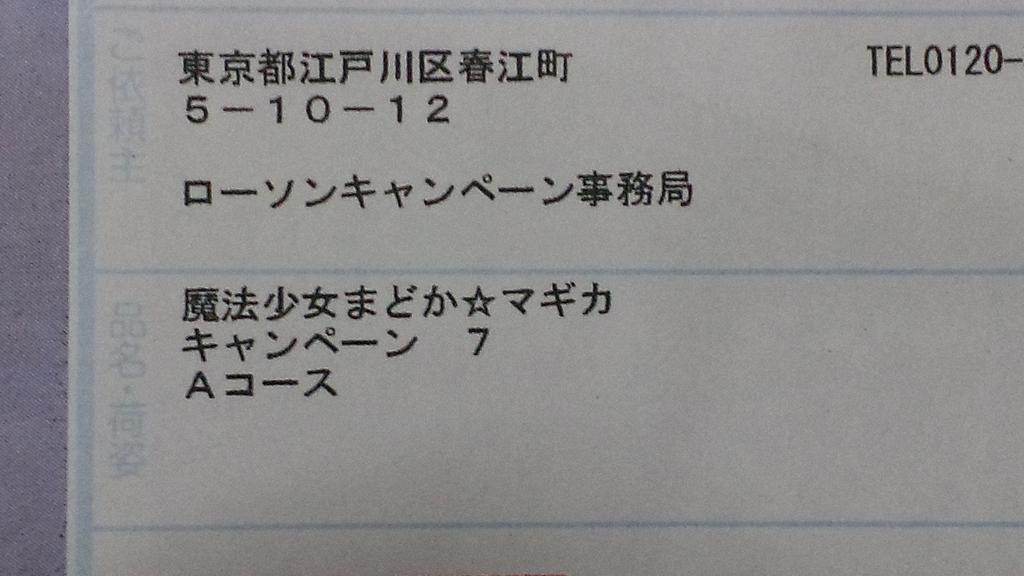 ご依頼主
東京都江戸川区春江町 TEL0120-
5－10－12
ローソンキャンペーン事務局
品名・荷姿
魔法少女まどか☆マギカ
キャンペーン 7
Aコース